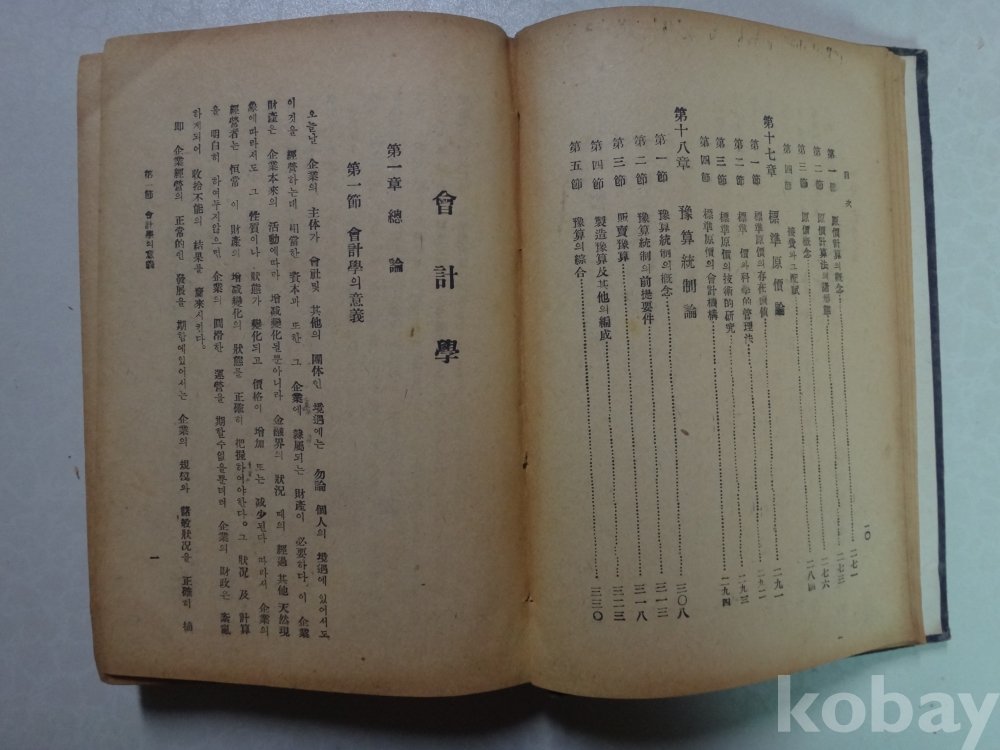 目 次
一〇
第一節 原價計算의 概念……二七一
第二節
第三節 原價概念……二七六
第四節 接費과 그 配賦……二八四
第十七章 標準原價論……二九一
第一節 標準原價의 存在價値……二九一
第二節 標準 價와 科學的管理法……二九三
第三節 標準原價의 技術的研究
第四節 標準原價의 會計機構……二九四
第十八章 豫算統制論……三〇八
第一節 豫算統制의 概念……三一三
第二節 豫算統制의 前提要件……三一八
第三節 販賣豫算……三二三
第四節 製造豫算及其他의 編成
第五節 豫算의 綜合……三三〇
會計學
第一章 總論
第一節 會計學의 意義
오늘날 企業의 主体가 會社및 其他의 團体인 境遇에는 勿論 個人의 境遇에 있어서도
이것을 經營하는데 相當한 資本과 또한 그 企業에 隷屬되는 財產이 必要하다 이 企業
財產은 企業本來의 活動에따라 增減變化될뿐아니라 金融界의 狀況 時의 經過 其他 天然現
象에따라서도 그 性質이나 狀態가 變化되고 價格이 增加 또는 減少된다 따라서 企業의
經營者는 恒常 이 財產의 增減變化의 狀態를 正確히 把握하여야한다。그 狀況 及 計算
을 明白히 하여두지않으면 企業의 圓滑한 運營을 期할수없을뿐더러 企業의 財政은 紊亂
하게되어 收拾不能의 結果를 齎來시킨다。
即 企業經營의 正常的인 發展을 期함에있어서는 企業의 規模와 狀況을 正確히
第一節 會計學의意義
一
kobay